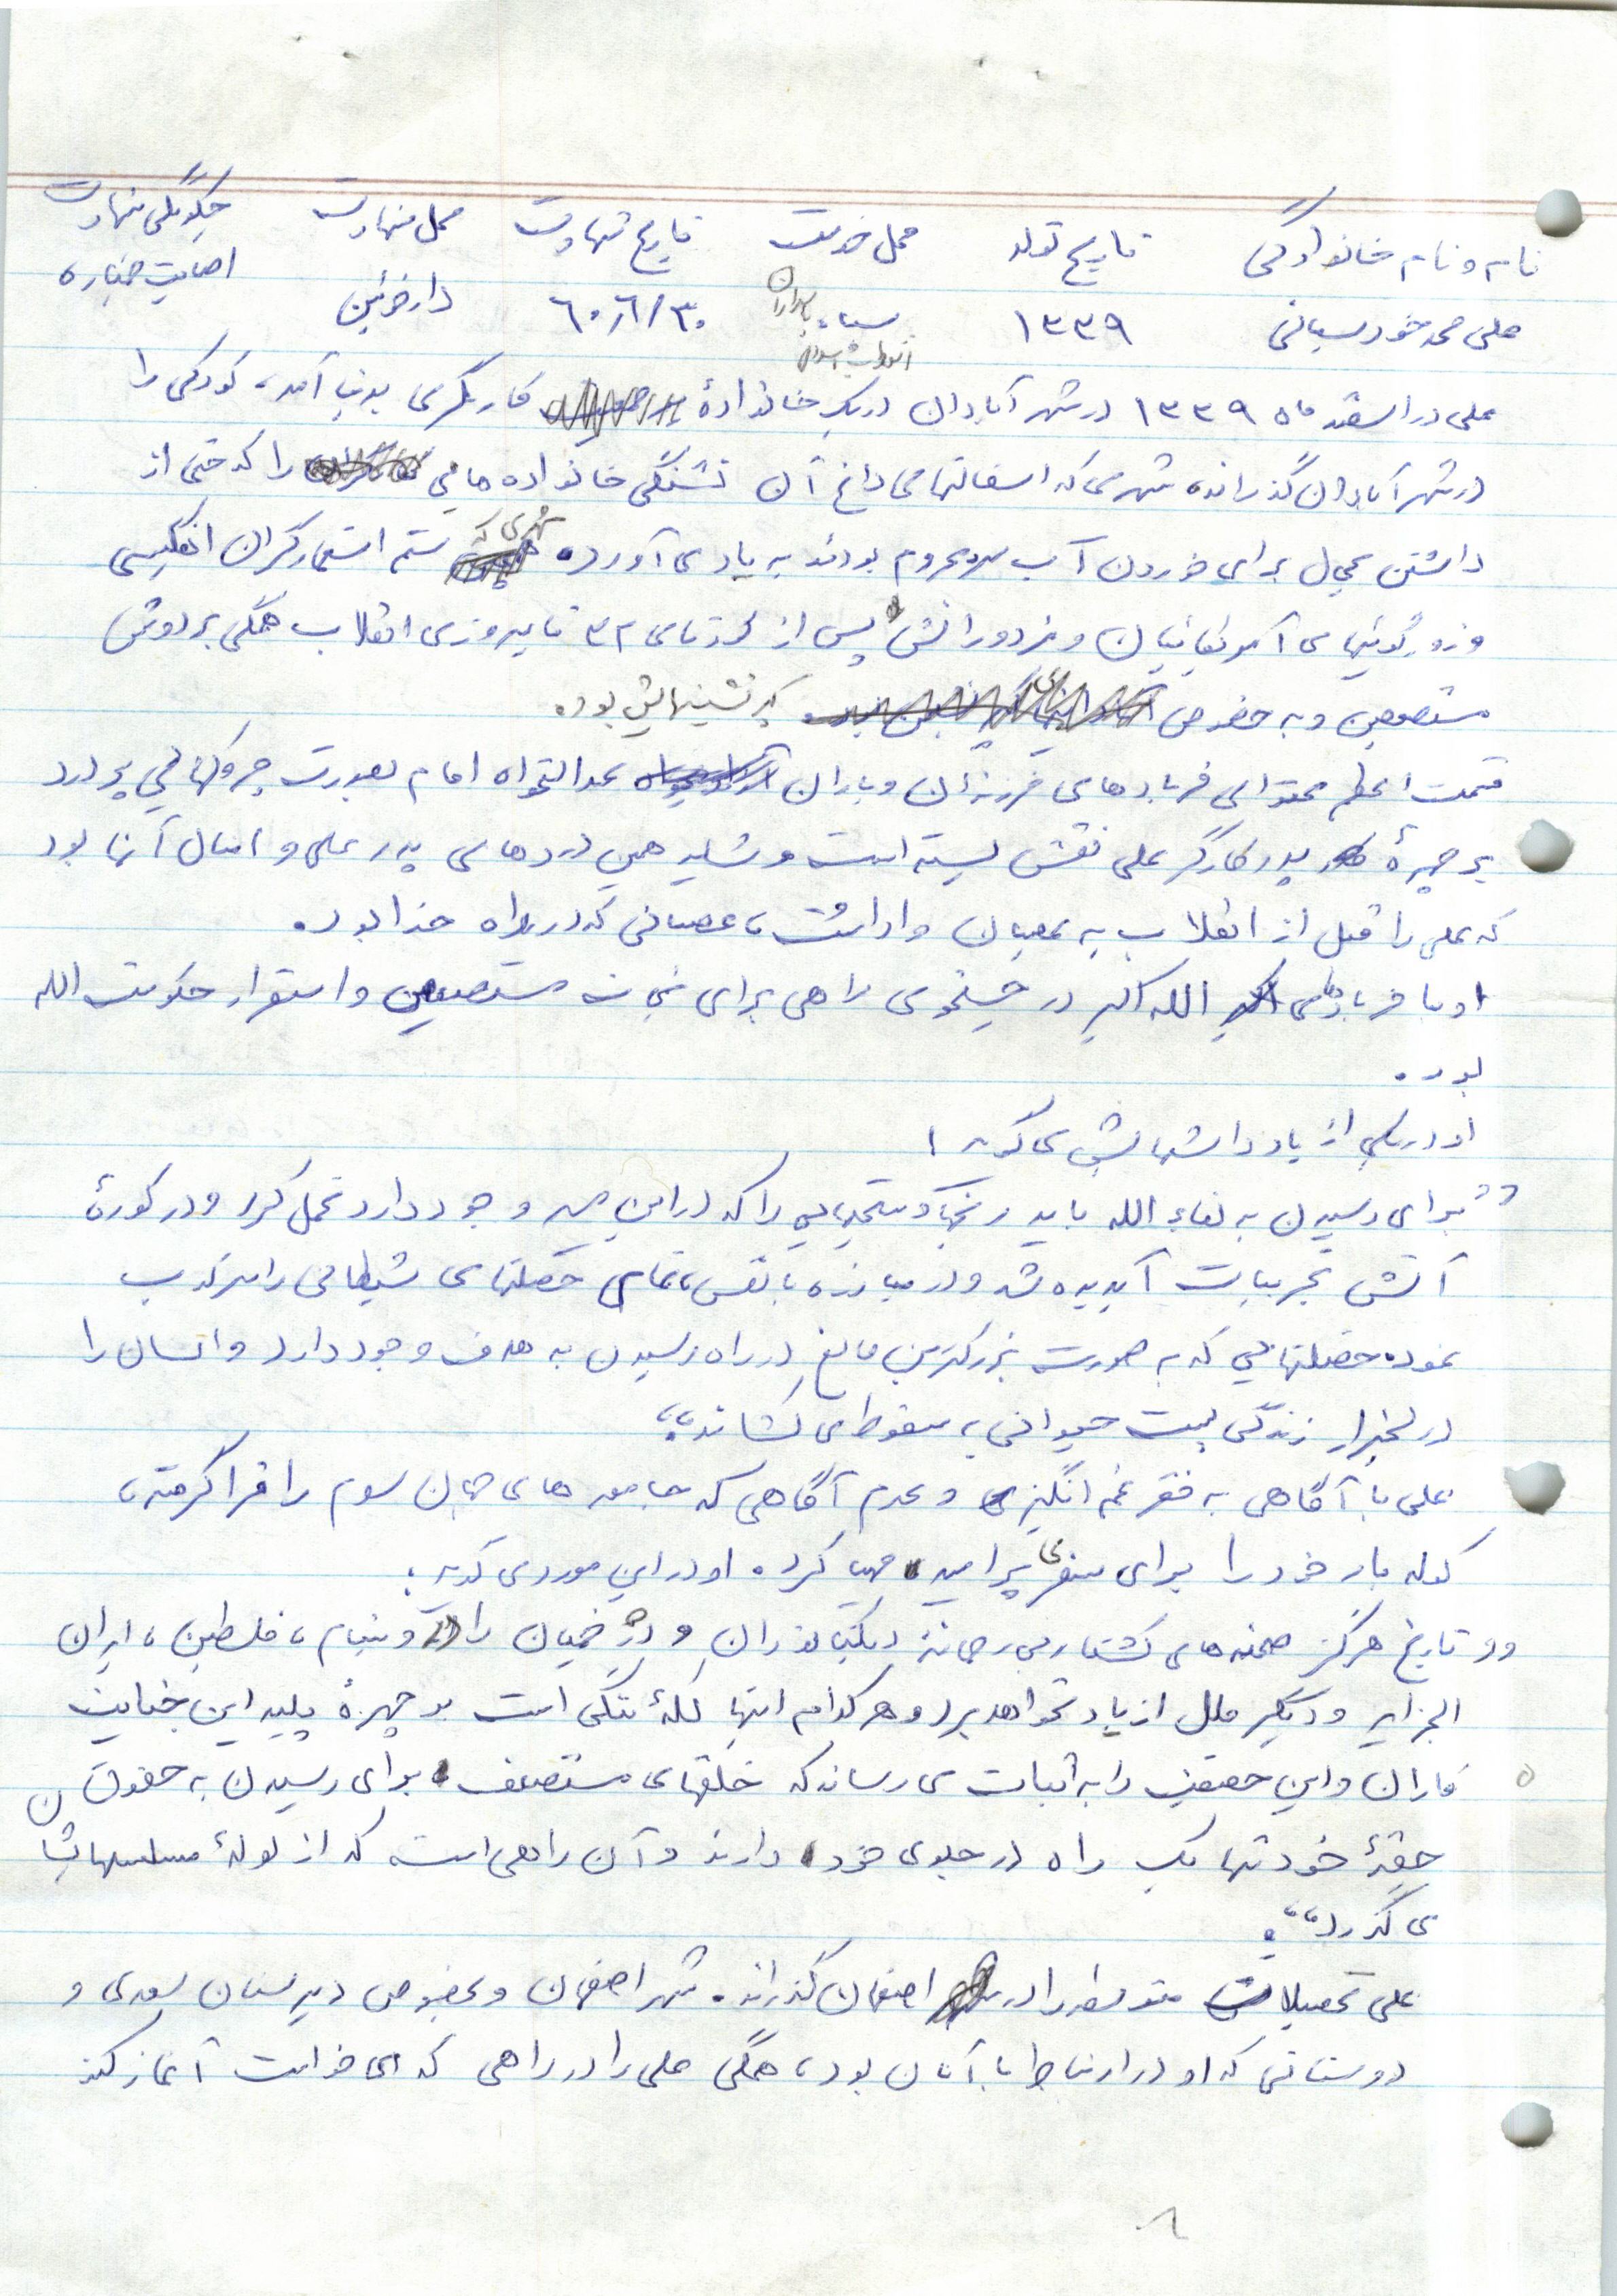 نام و نام خانوادگی تاریخ تولد محل خدمت تاریخ شهادت محل شهادت چگونگی شهادت
علی محمد خورسیانی ۱۳۳۹ سپاه پاسداران انقلاب اسلامی ۶۰/۶/۳۰ دارخوئین اصابت خمپاره
علی در اسفند ماه ۱۳۳۹ در شهر آبادان در یک خانوادهٔ کارگری بدنیا آمد، کودکی را
در شهر آبادان گذرانده شهری که اسفالتهای داغ آن تشنگی خانواده هایی را که حتی از
داشتن یخچال برای خوردن آب سرد محروم بودند به یاد می آورده شهری که ستم استعمارگران انگلیسی
و زورگوئیهای آمریکائیان و مزدورانش پس از کودتای ۳۲ تا پیروزی انقلاب همگی بر دوش
مستضعفین و به خصوص کپرنشینهایش بوده
قسمت اعظم محتوای فریادهای فرزندان و یاران عدالتخواه امام بصورت چروکهایی پر درد
بر چهرهٔ پدر کارگر علی نقش بسته است و شاید همین دردهای پدر علی و امثال آنها بود
که علی را قبل از انقلاب به عصیان واداشت، عصیانی که در راه خدا بود.
او با فریادهای الله اکبر در جستجوی راهی برای نجات مستضعفین و استقرار حکومت الله
بود.
او در یکی از یادداشتهایش می گوید:
"برای رسیدن به لقاء الله باید رنجها و سختیهایی را که در این مسیر وجود دارد تحمل کرد و در کورهٔ
آتش تجربیات آبدیده شد و در مبارزه با نفس، تمامی خصلتهای شیطانی را سرکوب
نموده خصلتهایی که به صورت بزرگترین مانع در راه رسیدن به هدف وجود دارد و انسان را
در لجنزار زندگی پست حیوانی به سقوط می کشاند"
علی با آگاهی به فقر غم انگیزی و عدم آگاهی که جامعه های جهان سوم را فرا گرفته،
کوله بار خود را برای سفری پر امید مهیا کرد. او در این مورد می گوید:
"تاریخ هرگز صحنه های کشتار بی رحمانه دیکتاتوران و دژخیمان را در ویتنام، فلسطین، ایران
الجزایر و دیگر ملل از یاد نخواهد برد و هر کدام اینها لکهٔ ننگی است بر چهرهٔ پلید این جنایت
کاران و این حقیقت را به اثبات می رساند که خلقهای مستضعف برای رسیدن به حقوق
حقهٔ خود تنها یک راه در جلوی خود دارند و آن راهی است که از لولهٔ مسلسلهایشان
می گذرد".
علی تحصیلات متوسطه را در اصفهان گذرانده. شهر اصفهان و بخصوص دبیرستان سعدی و
دوستانی که او در ارتباط با آنان بود، همگی علی را در راهی که می خواست آغاز کند